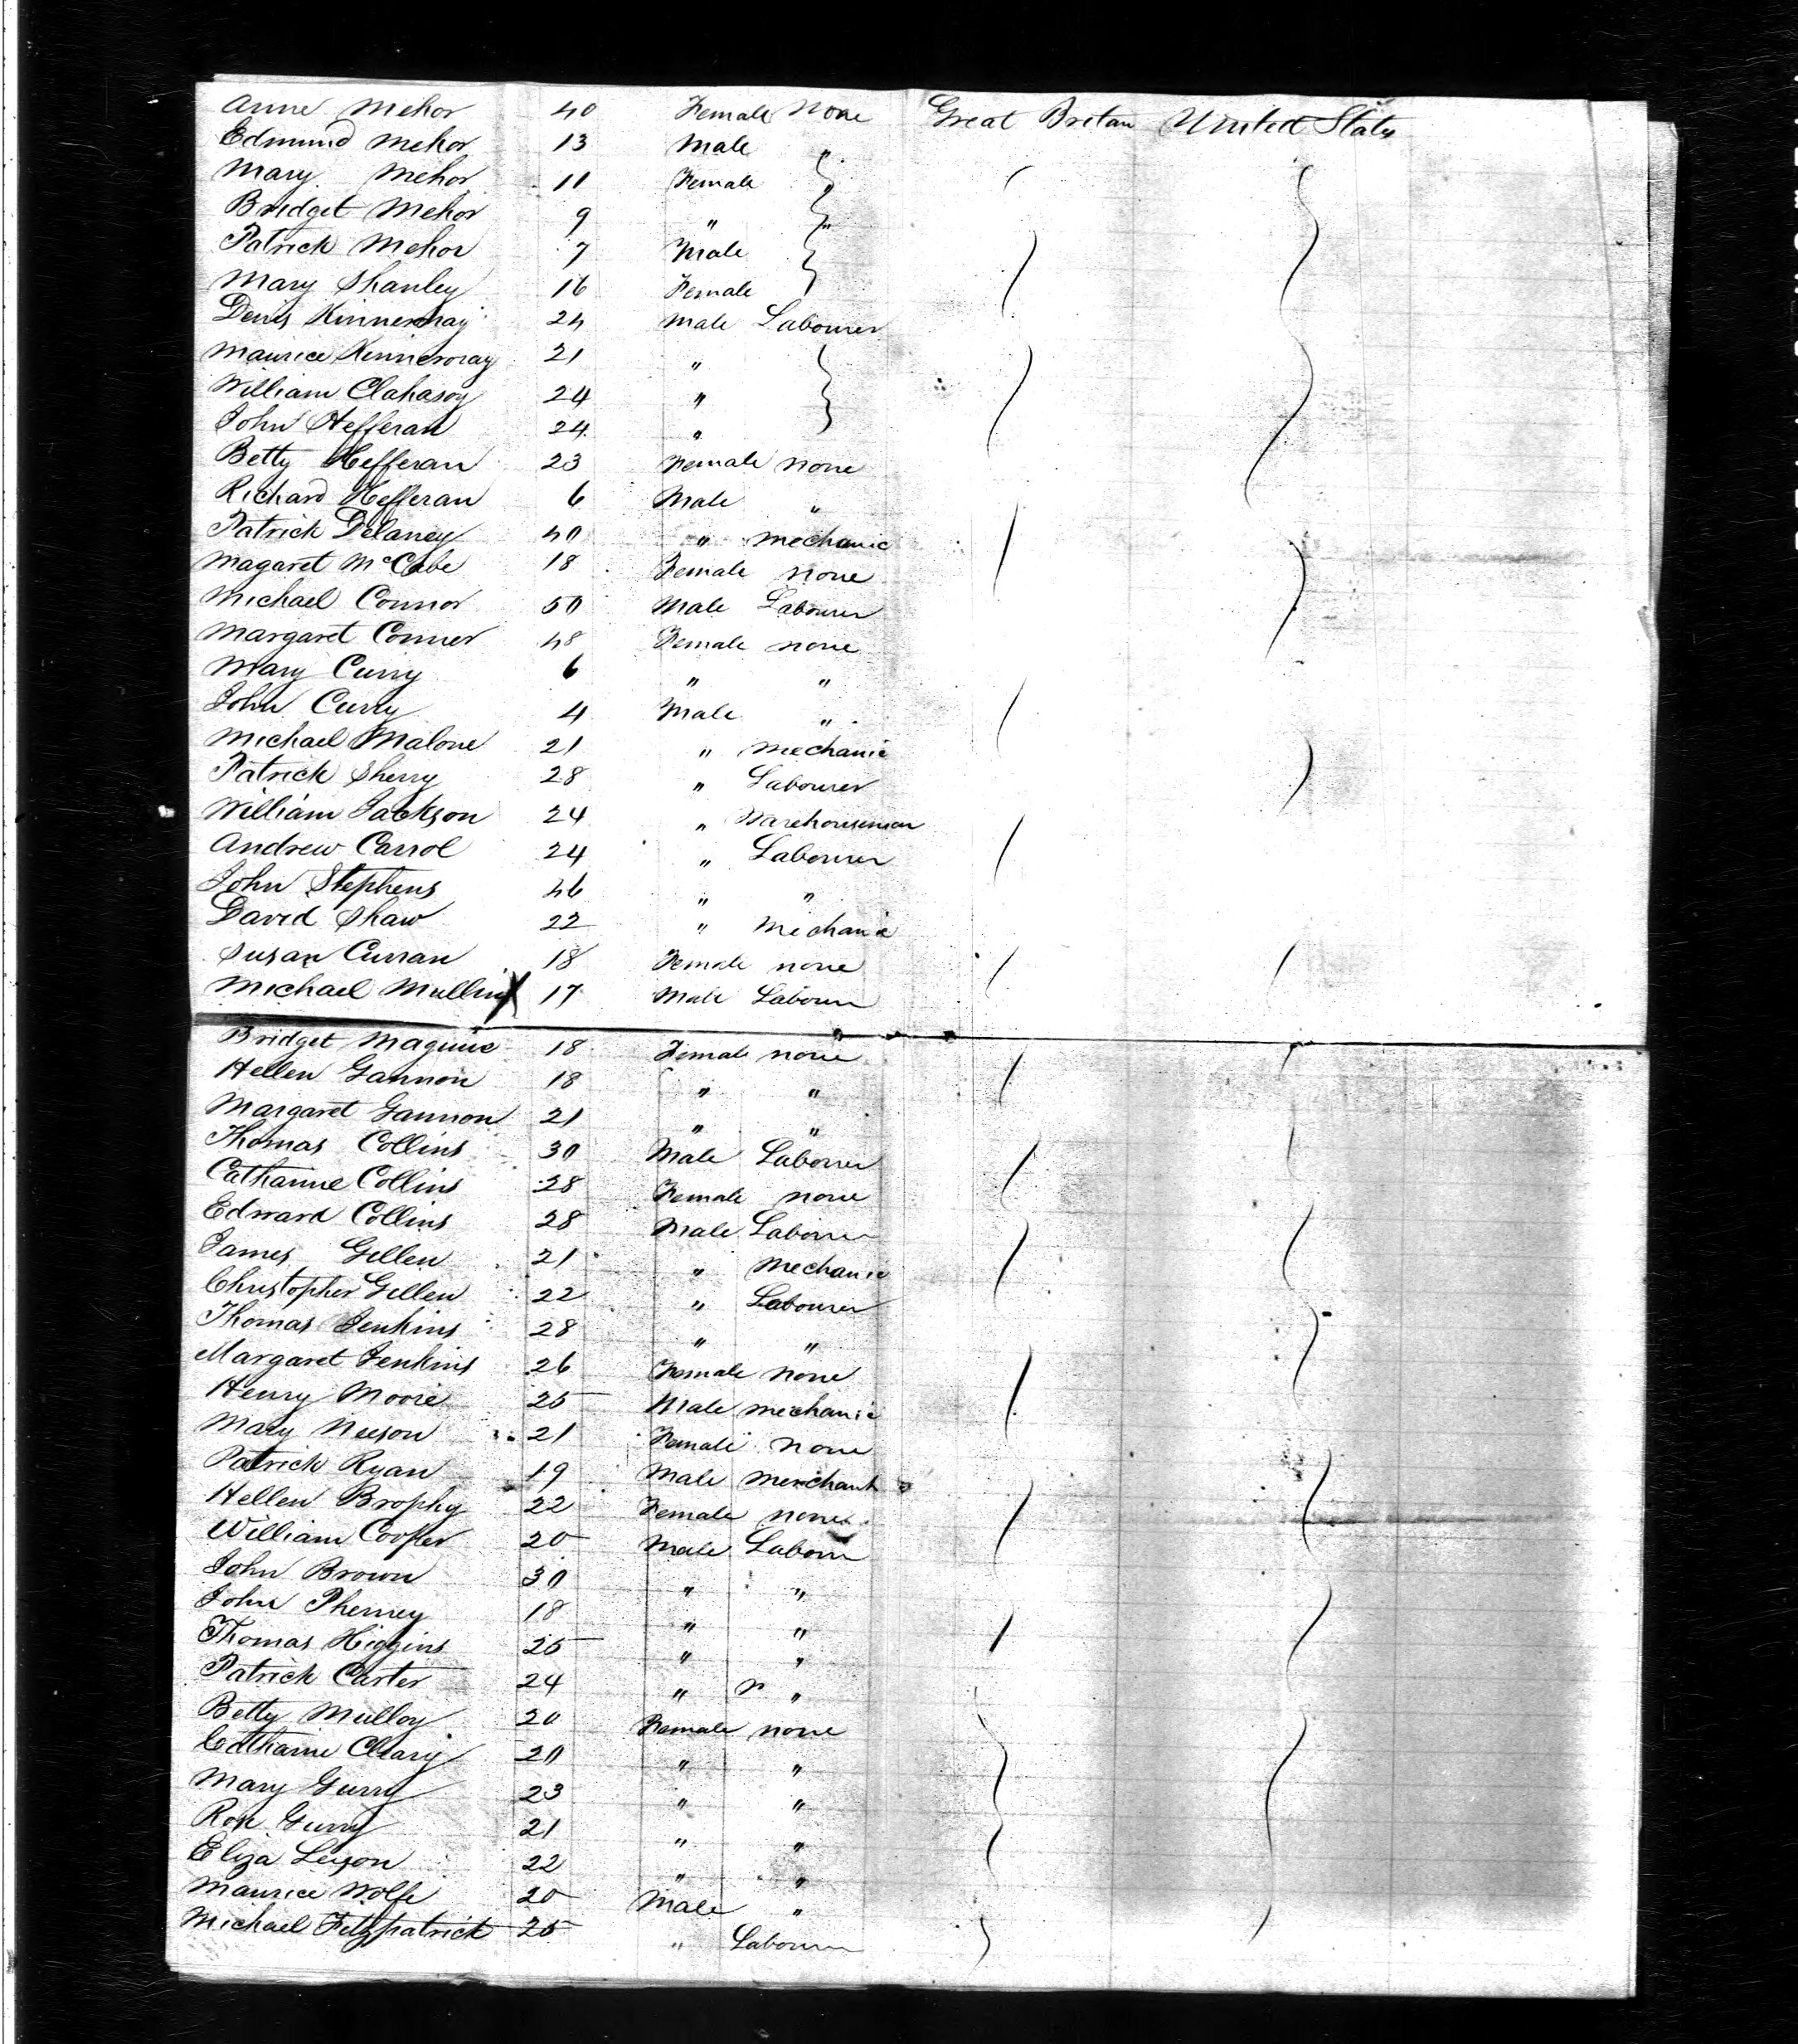 Anne Mehor 40 Female None Great Britan United States
Edmund Mehor 13 Male "
Mary Mehor 11 Female "
Bridget Mehor 9 " "
Patrick Mehor 7 Male
Mary Shanley 16 Female
Denis 24 Male Labourer
Maurice 21 "
William Clahasey 24 "
John Hefferan 24 "
Betty Hefferan 23 Female None
Richard Hefferan 6 Male "
Patrick Delaney 40 " Mechanic
Magaret McCabe 18 Female None
Michael Connor 50 Male Labourer
Margaret Conner 48 Female None
Mary Curry 6 " "
John Curry 4 Male "
Michael Malone 21 " Mechanic
Patrick Sherry 28 " Labourer
William Jackson 24 " Warehouseman
Andrew Carrol 24 " Labourer
John Stephens 46 " "
David Shaw 22 " Mechanic
Susan Curran 18 Female none
Michael Mullin X 17 Male Labourer
Bridget Maguire 18 Female none
Hellen Gannon 18 " "
Margaret Gannon 21 " "
Thomas Collins 30 Male Labourer
Catharine Collins 28 Female none
Edward Collins 28 Male Labourer
James Gillen 21 " Mechanic
Christopher Gillen 22 " Labourer
Thomas Jenkins 28 " "
Margaret Jenkins 26 Female None
Henry Moore 25 Male Mechanic
Mary Neeson 21 Female None
Patrick Ryan 19 Male Merchant
Hellen Brophy 22 Female none
William Cooper 20 Male Labour
John Brown 30 " "
John Pherney 18 " "
Thomas Higgins 25 " "
Patrick Carter 24 " "
Betty Mulloy 20 Female none
Catharine Cleary 20 " "
Mary Gurry 23 " "
Rose Gurry 21 " "
Eliza Leeson 22 " "
Maurice Wolfe 20 Male "
Michael Fitzpatrick 25 " Labourer